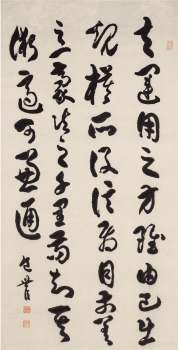 夫運用之方雖由己出
規模所設信屬目前差
之一豪失之千里苟知其
術適可兼通
包世臣